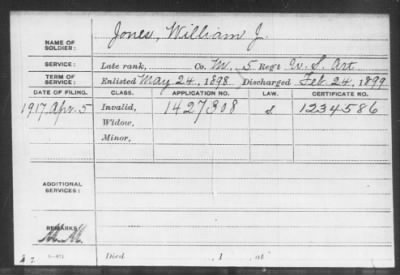 NAME OF SOLDIER: Jones, William J.
SERVICE: Late rank, Co. M. 5 Reg't U. S. Art
TERM OF SERVICE: Enlisted May 24, 1898. Discharged Feb. 24, 1899
DATE OF FILING. CLASS. APPLICATION NO. LAW. CERTIFICATE NO.
1917 Apr. 5 Invalid, 1427308 S 1234586
Widow,
Minor,
ADDITIONAL SERVICES:
REMARKS:
Died , 1 , at